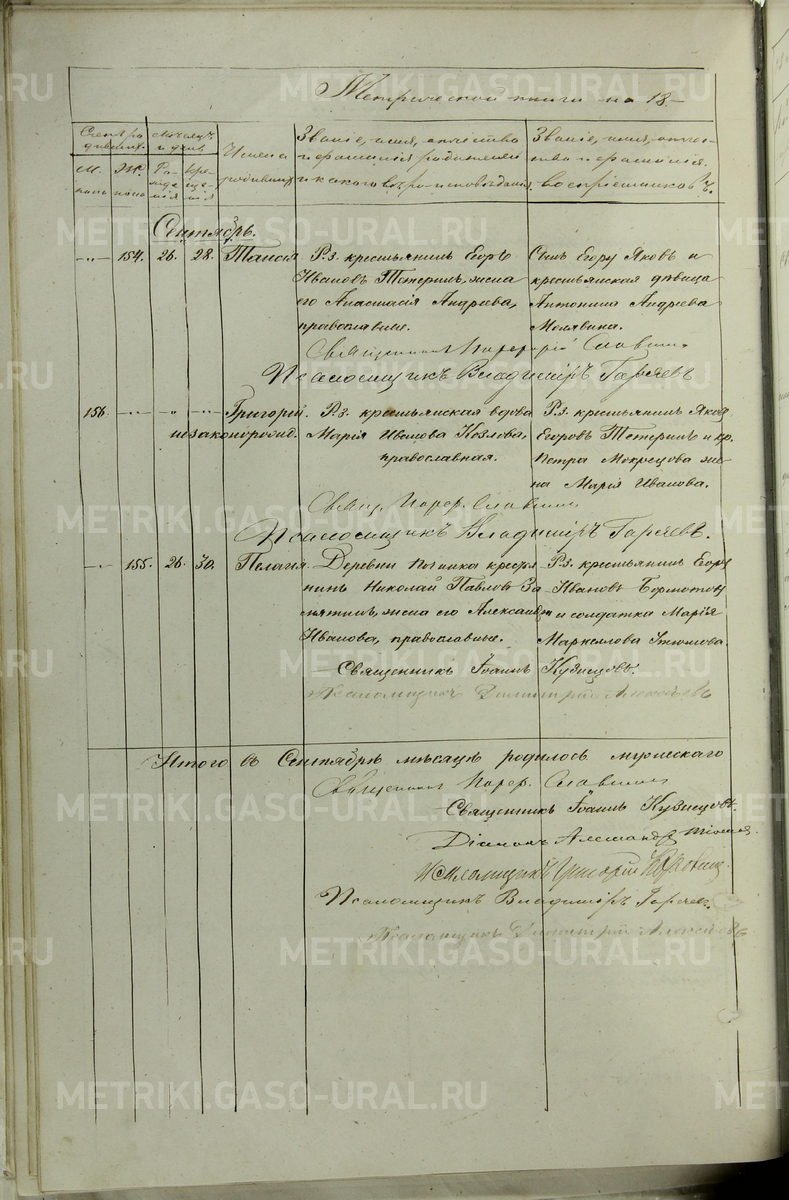 Метрической книги на 18
Счетъ ро
дившихъ.
Мѣсяцъ
и день.
Имена
родившихъ
Званіе, имя, отчество
и фамилія родителей
и какого вѣроисповѣданія.
Званіе, имя, отче-
ство и фамилія
воспріемниковъ.
М.
пола
Ж.
пола
Ро-
жде
нія
Кре-
ще-
нія
Сентябрь.
154. 26. 28. Таисія Р.з. крестьянинъ Егоръ
Ивановъ Тетеринъ, жена
его Анастасія Андреева,
православные.
Сынъ Егору Яковъ и
крестьянская дѣвица
Антонина Андреева
Священникъ Порфирій Славнинъ
Псаломщикъ Владиміръ Гаряевъ
156. Григорій
незаконорожд.
Р.з. крестьянская вдова
Марія Иванова Козлова,
православная.
Р.з. крестьянинъ Яковъ
Егоровъ Тетеринъ и кр.
Петра Мокрецова же-
на Марія Иванова.
Свящ. Порф. Славнинъ
Псаломщикъ Владиміръ Гаряевъ.
155. 26. 30. Пелагія Деревни Починка крестья
нинъ Николай Павловъ За
пятинъ, жена его Александра
Иванова, православные.
Р.з. крестьянинъ Егоръ
Ивановъ
и солдатка Марія
Маркеллова
Священникъ Іоаннъ Кузнецовъ.
Псаломщикъ Димитрій Алексѣевъ
Итого въ Сентябрѣ мѣсяцѣ родилось мужескаго
Священникъ Порф. Славнинъ
Священникъ Іоаннъ Кузнецовъ.
Діаконъ Александръ
Псаломщикъ Григорій
Псаломщикъ Владиміръ Гаряевъ.
Псаломщикъ Димитрій Алексѣевъ
METRIKI.GASO-URAL.RU